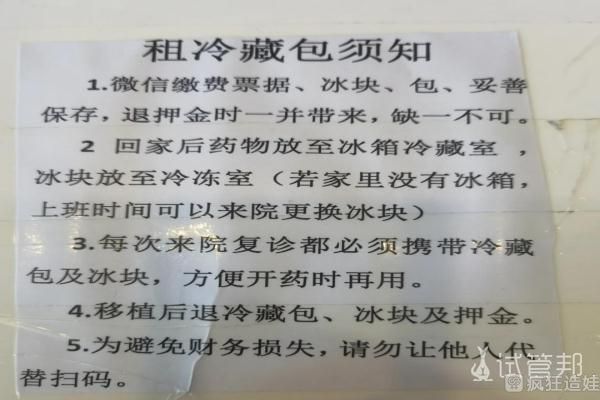 租冷藏包须知
1.微信缴费票据、冰块、包、妥善
保存，退押金时一并带来，缺一不可。
2 回家后药物放至冰箱冷藏室，
冰块放至冷冻室（若家里没有冰箱，
上班时间可以来院更换冰块）
3.每次来院复诊都必须携带冷藏
包及冰块，方便开药时再用。
4.移植后退冷藏包、冰块及押金。
5.为避免财务损失，请勿让他人代
替扫码。
试管邦
疯狂造娃